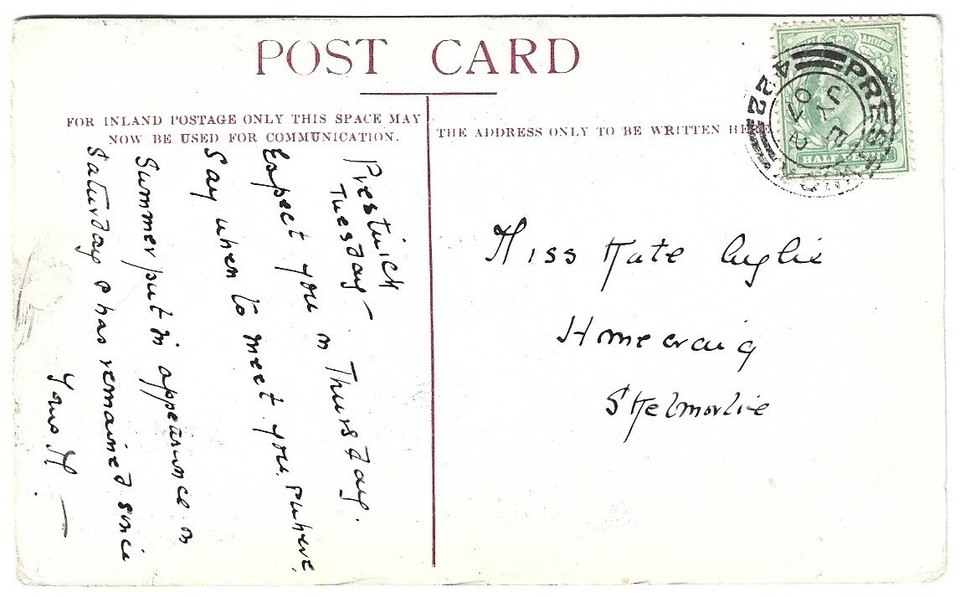 POST CARD
FOR INLAND POSTAGE ONLY THIS SPACE MAY
NOW BE USED FOR COMMUNICATION.
THE ADDRESS ONLY TO BE WRITTEN HERE
Prestwick
Tuesday –
Expect you on Thursday.
Say when to meet you, & where,
Summer put in appearance on
Saturday & has remained since
Yours H. —
Miss Kate
Homecraig
Skelmorlie
HALF PENNY
422
JY
07